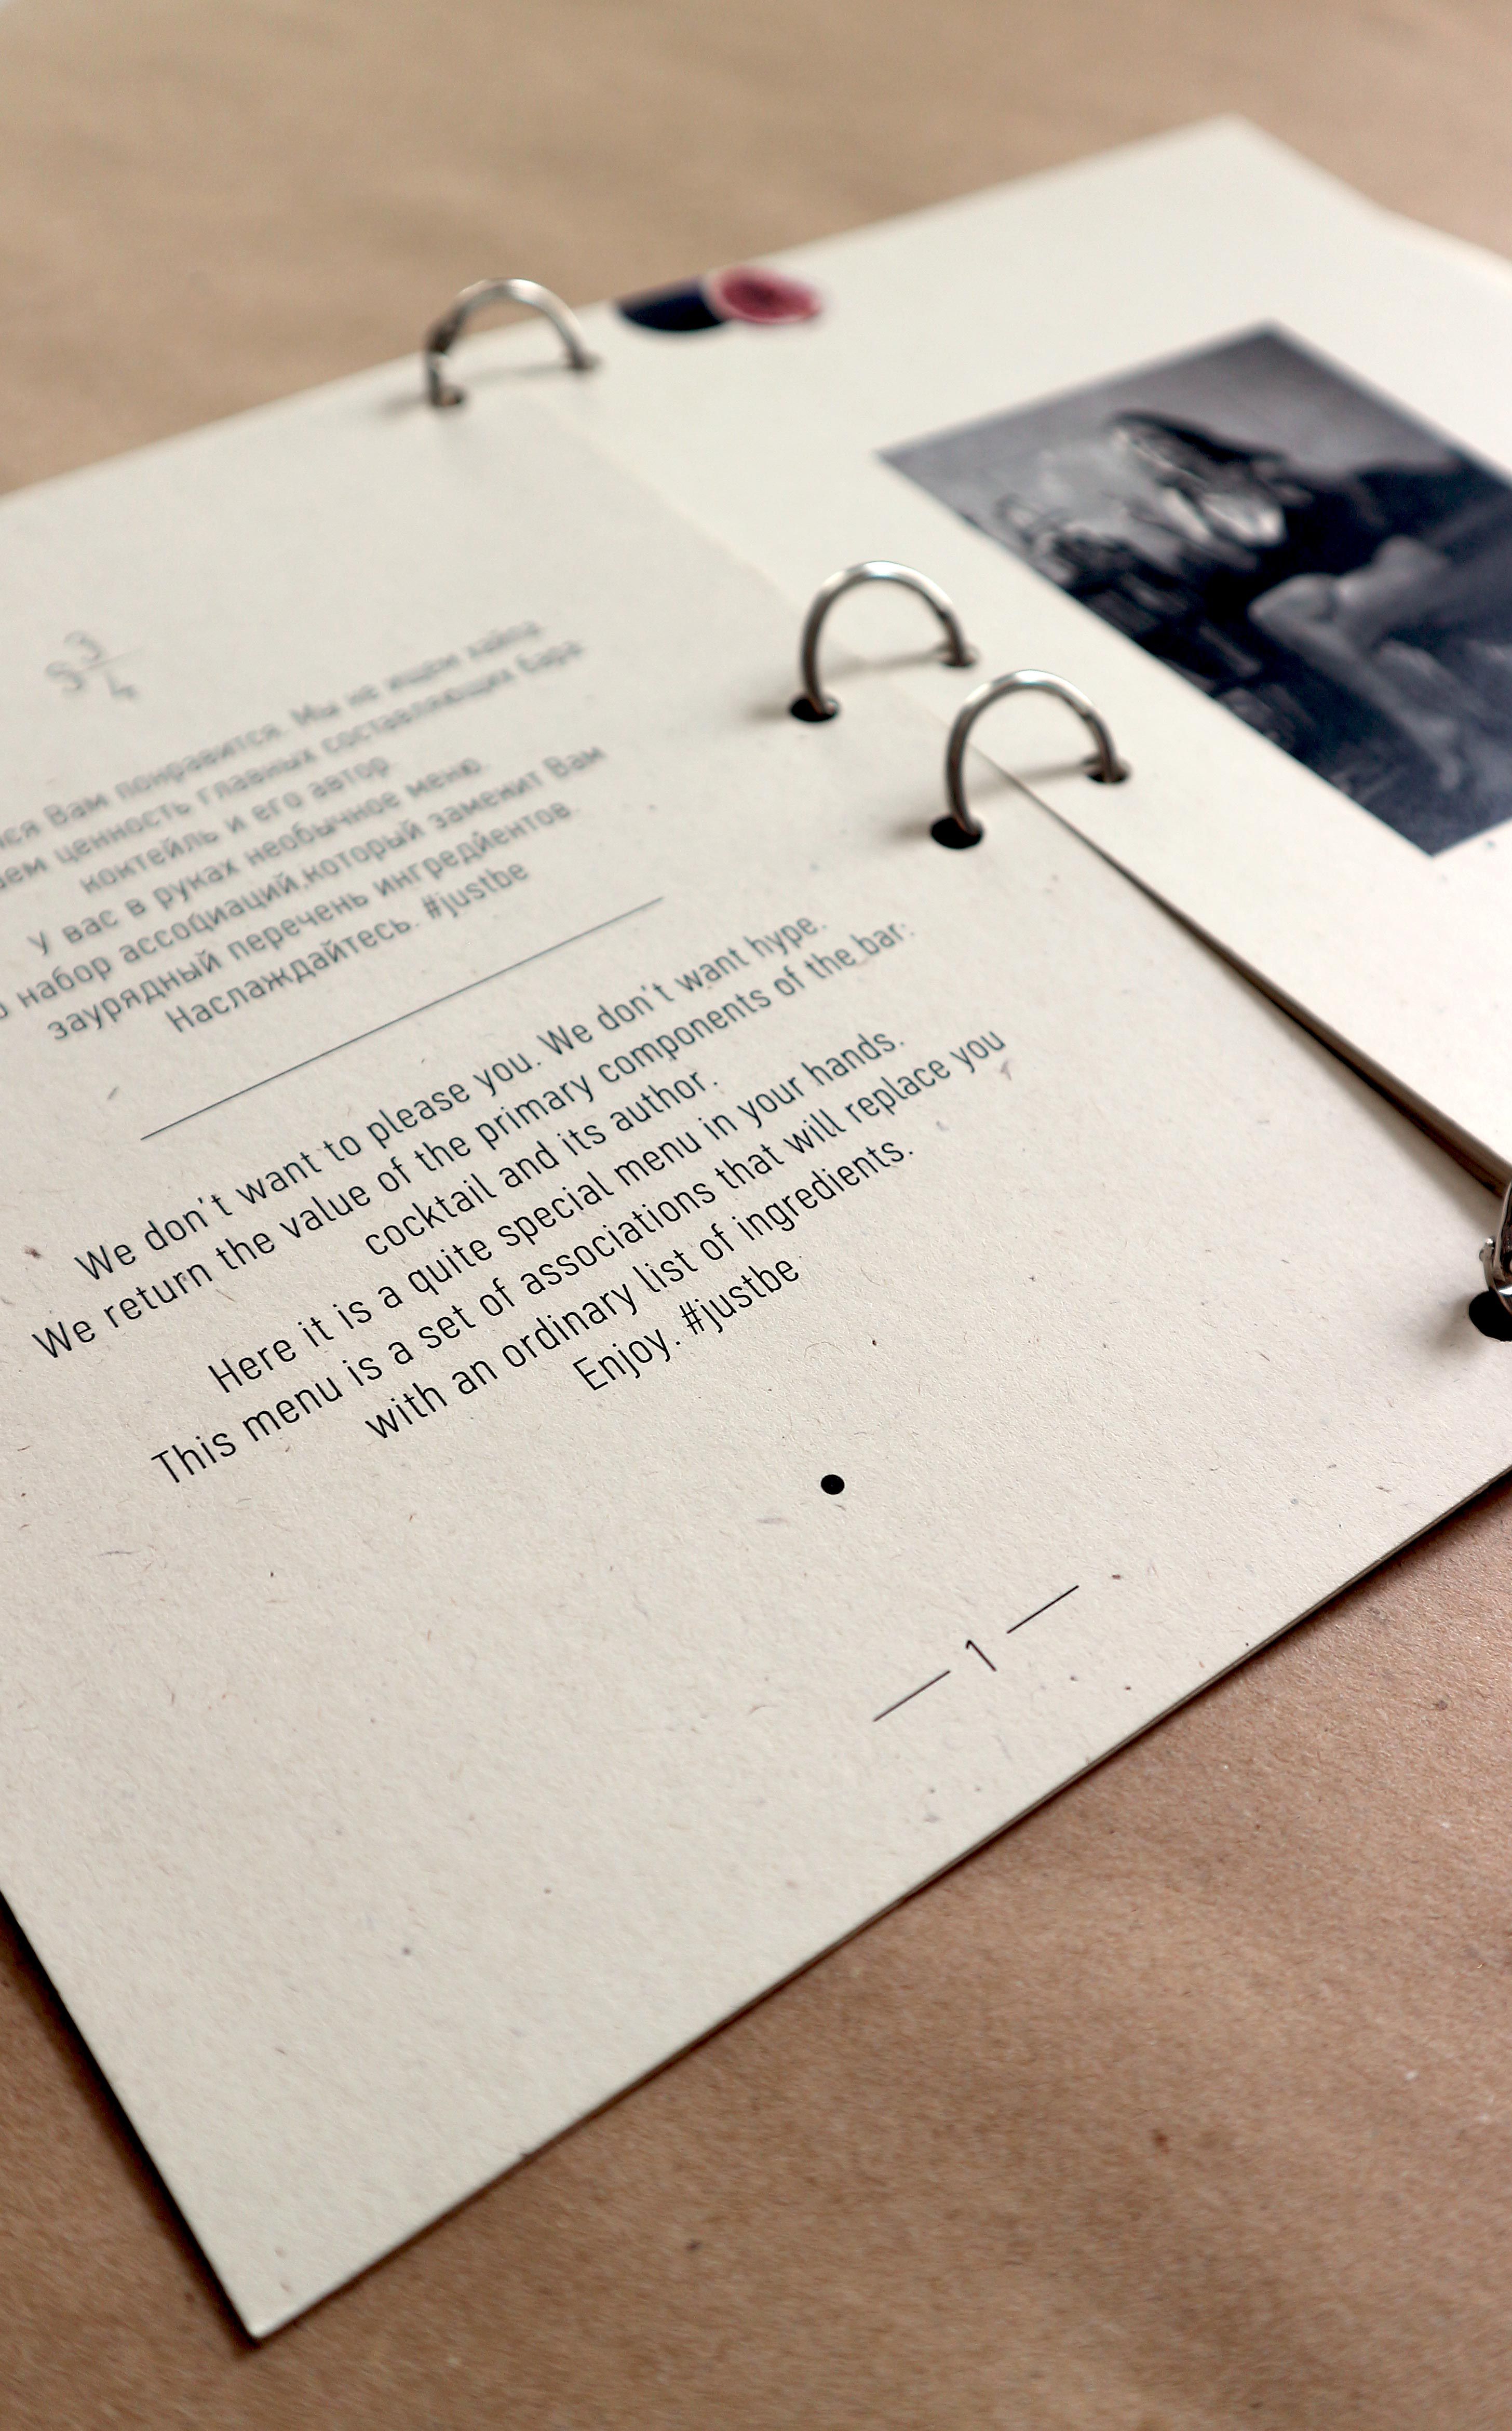 3
4
ся Вам понравится. Мы не ищем хайпа.
ем ценность главных составляющих бара
коктейль и его автор.
у вас в руках необычное меню.
о набор ассоциаций,который заменит Вам
заурядный перечень ингредиентов.
Наслаждайтесь. #justbe
We don't want to please you. We don't want hype.
We return the value of the primary components of the bar:
cocktail and its author.
Here it is a quite special menu in your hands.
This menu is a set of associations that will replace you
with an ordinary list of ingredients.
Enjoy. #justbe
— 1 —